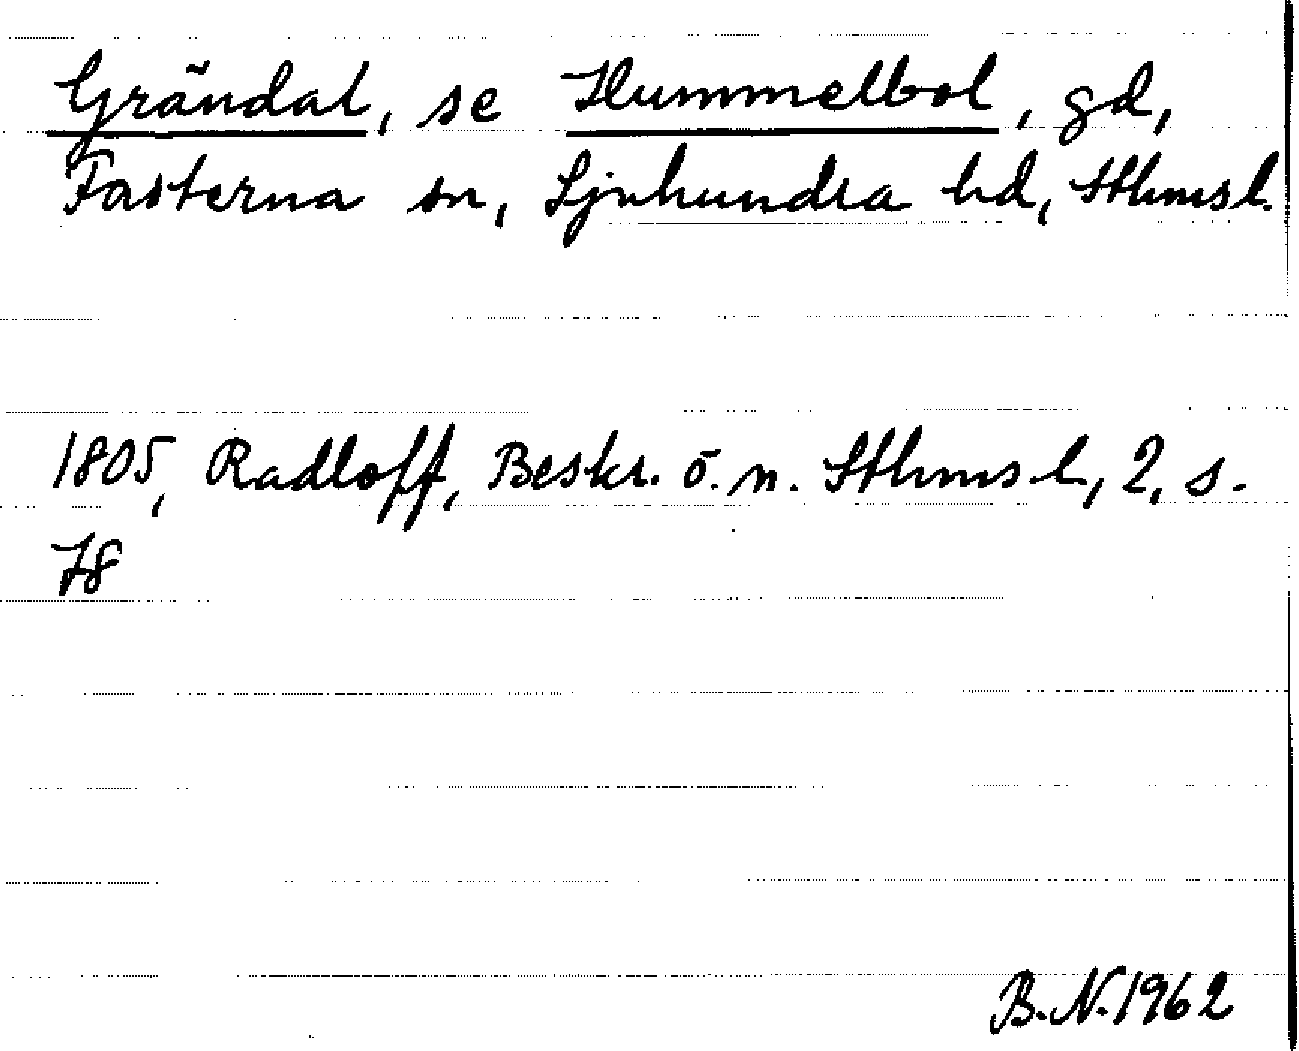 Grändal, se Hummelbol, gd,
Fasterna sn, Sjuhundra hd, Sthmsl.
1805, Radloff, Beskr. ö. n. Sthms l, 2, s.
78
B.N. 1962